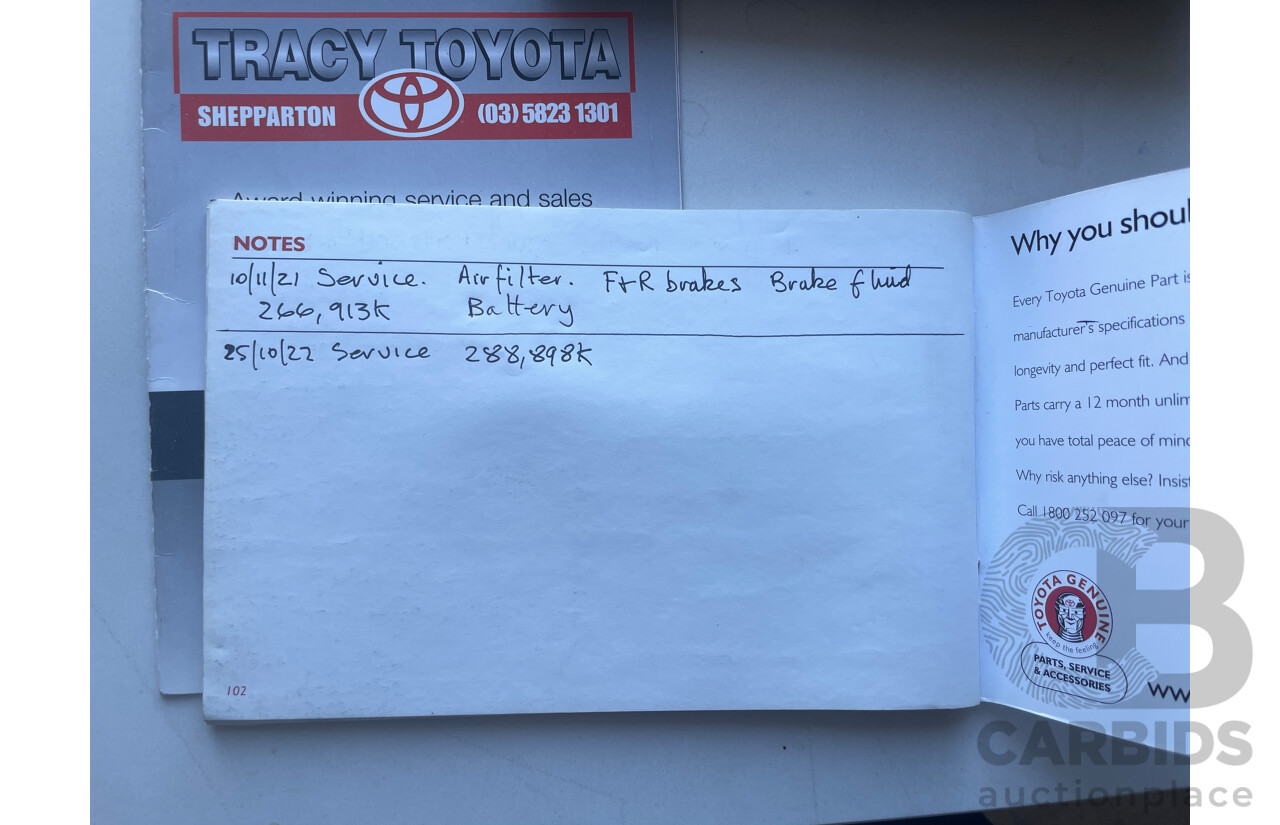 TRACY TOYOTA
SHEPPARTON (03) 5823 1301
Award winning service and sales
NOTES
10/11/21 Service. Air filter. F+R brakes Brake fluid
266,913K Battery
25/10/22 Service 288,898K
102
Why you shoul
Every Toyota Genuine Part is
manufacturer's specifications
longevity and perfect fit. And
Parts carry a 12 month unlim
you have total peace of mind
Why risk anything else? Insist
Call 1800 252 097 for your
TOYOTA GENUINE
keep the feeling
PARTS, SERVICE
& ACCESSORIES
ww
CARBIDS
auctionplace